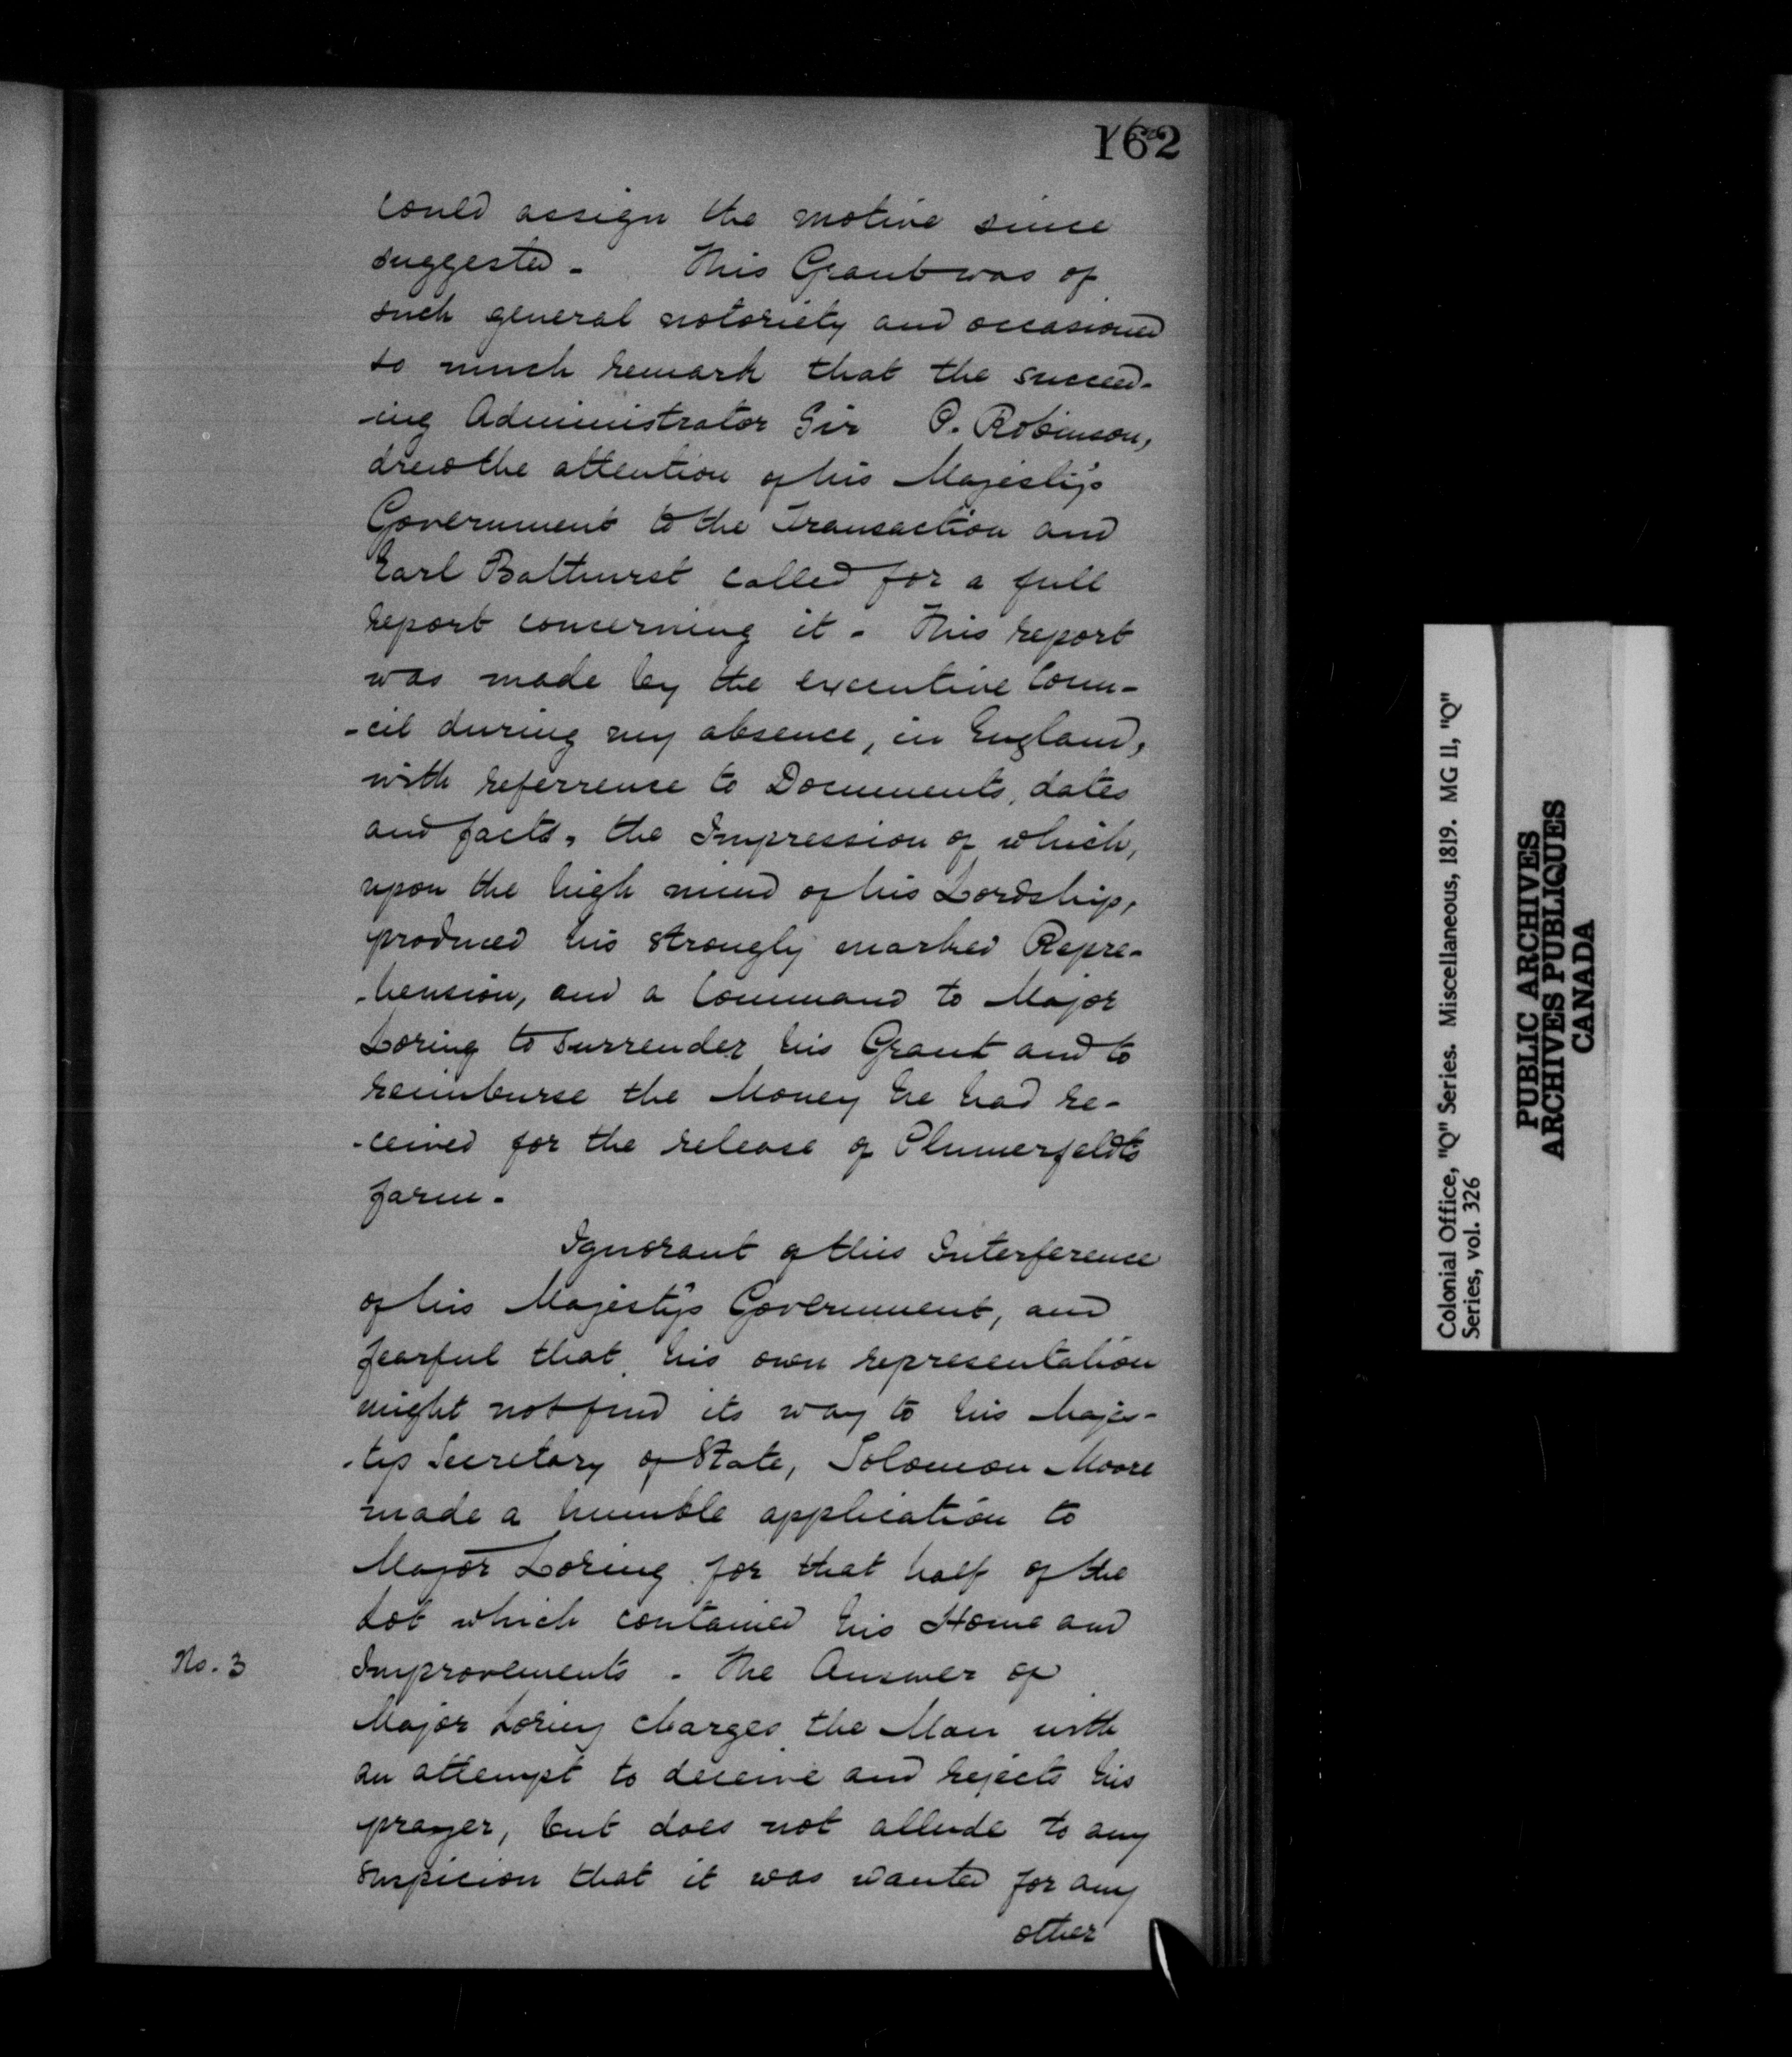 162
could assign the motive since
suggested - This Grant was of
such general notoriety and occasioned
so much remark that the succeed-
-ing Administrator Sir P. Robinson,
drew the attention of his Majesty's
Government to the Transaction and
Earl Bathurst called for a full
report concerning it - This report
was made by the executive Coun-
-cil during my absence, in England,
with referrence to Documents, dates
and facts, the Impression of which,
upon the high mind of his Lordship,
produced his strongly marked Repre-
-hension, and a Command to Major
Loring to surrender his Grant and to
reimburse the Money he had re-
-ceived for the release of Clumerfeldts
farm -
Ignorant of this Interference
of his Majesty's Government, and
fearful that his own representation
might not find its way to his Majes-
-tys Secretary of State, Solomon Moore
made a humble application to
Major Loring for that half of the
Lot which contained his Home and
No. 3
Improvements - The Answer of
Major Loring charges the Man with
an attempt to deceive and rejects his
prayer, but does not allude to any
suspicion that it was wanted for any
other
Colonial Office, "Q" Series. Miscellaneous, 1819. MG 11, "Q"
Series, vol. 326
PUBLIC ARCHIVES
ARCHIVES PUBLIQUES
CANADA